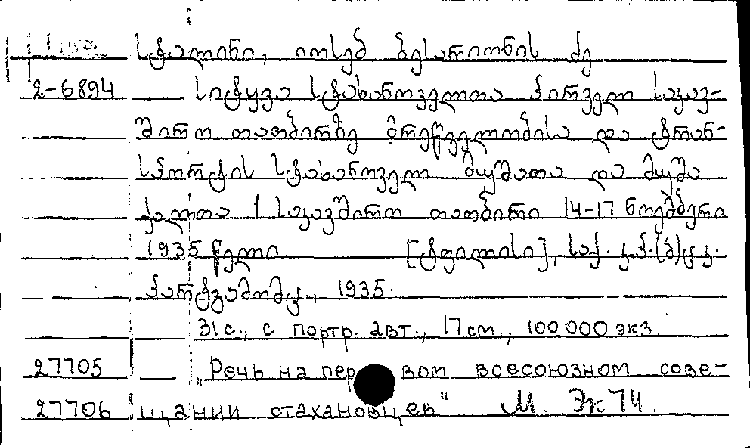 სტალინი, იოსებ ბესარიონის ძე
2-6894 სიტყვა სტახანოველთა პირველ საკავ-
შირო თათბირზე მრეწველობისა და ტრან-
სპორტის სტახანოველ მუშათა და მუშა
ქალთა I საკავშირო თათბირი 14-17 ნოემბერი
1935 წელი [ტფილისი], საქ. კ.პ.(ბ)ც.კ.
პარტგამომც., 1935.
31 с., с портр. авт., 17 см., 100 000 экз.
27705 „Речь на первом всесоюзном сове-
27706 щании стахановцев" М. Эк. 74.